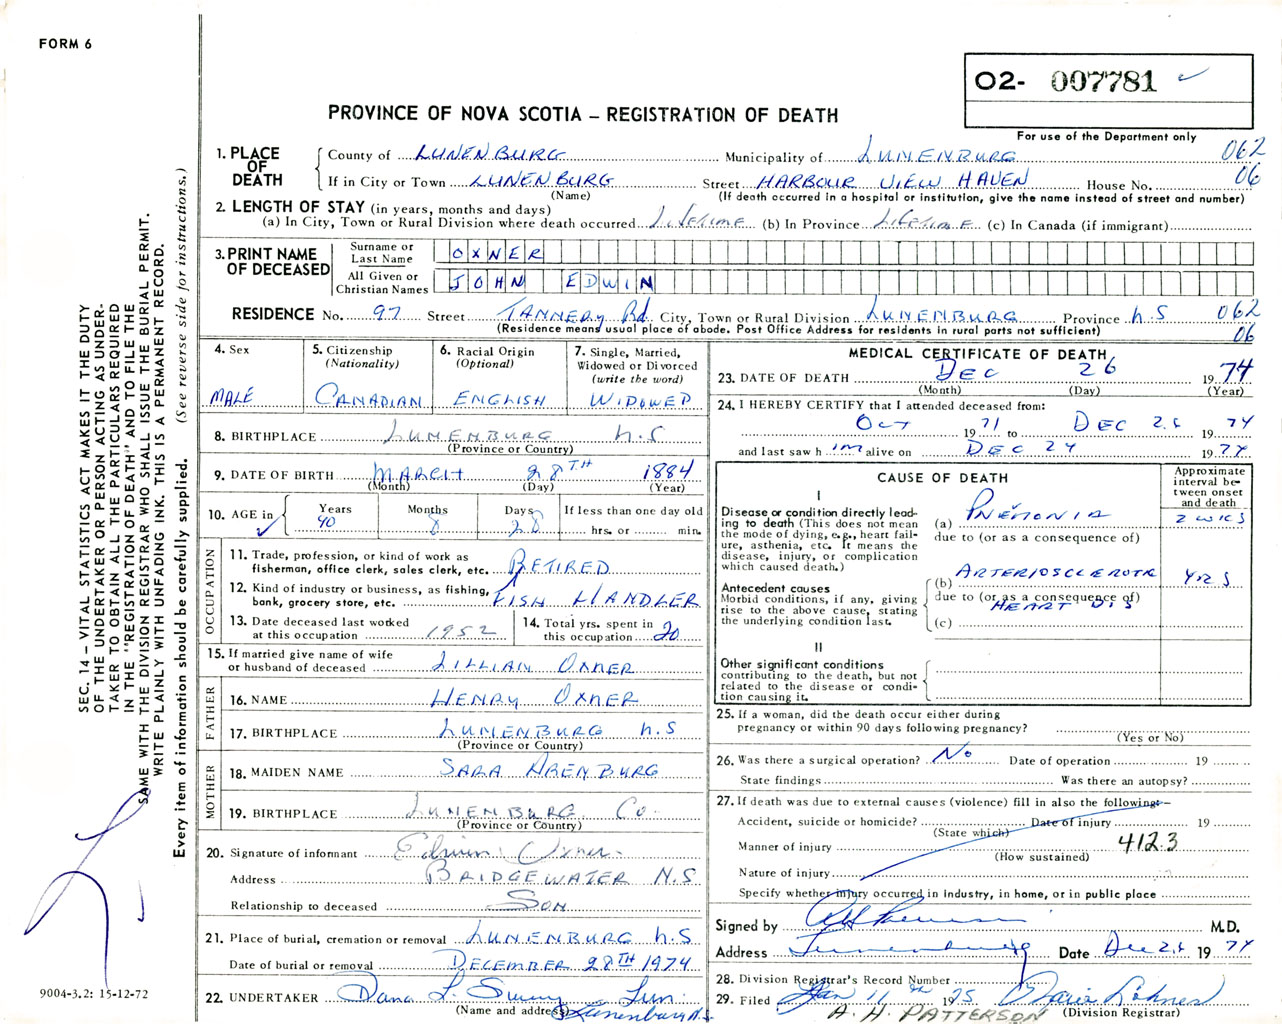 FORM 6
O2- 007781 ✓
PROVINCE OF NOVA SCOTIA – REGISTRATION OF DEATH
For use of the Department only
1. PLACE OF DEATH
County of LUNENBURG Municipality of LUNENBURG 062
If in City or Town LUNENBURG Street HARBOUR VIEW HAVEN House No. 06
(Name) (If death occurred in a hospital or institution, give the name instead of street and number)
2. LENGTH OF STAY (in years, months and days)
(a) In City, Town or Rural Division where death occurred LIFETIME (b) In Province LIFETIME (c) In Canada (if immigrant)
3. PRINT NAME OF DECEASED
Surname or Last Name OXNER
All Given or Christian Names JOHN EDWIN
RESIDENCE No. 97 Street TANNERY Rd City, Town or Rural Division LUNENBURG Province N.S 062
(Residence means usual place of abode. Post Office Address for residents in rural parts not sufficient) 06
4. Sex
MALE
5. Citizenship
(Nationality)
CANADIAN
6. Racial Origin
(Optional)
ENGLISH
7. Single, Married,
Widowed or Divorced
(write the word)
WIDOWED
8. BIRTHPLACE LUNENBURG N.S
(Province or Country)
9. DATE OF BIRTH MARCH 28TH 1884
(Month) (Day) (Year)
10. AGE in ✓
Years 90 Months 8 Days 28
If less than one day old
hrs. or min.
OCCUPATION
11. Trade, profession, or kind of work as
fisherman, office clerk, sales clerk, etc. RETIRED
12. Kind of industry or business, as fishing,
bank, grocery store, etc. FISH HANDLER
13. Date deceased last worked
at this occupation 1952
14. Total yrs. spent in
this occupation 20
15. If married give name of wife
or husband of deceased LILLIAN OXNER
FATHER
16. NAME HENRY OXNER
17. BIRTHPLACE LUNENBURG N.S
(Province or Country)
MOTHER
18. MAIDEN NAME SARA ARENBURG
19. BIRTHPLACE LUNENBURG Co
(Province or Country)
20. Signature of informant Edwin Oxner
Address BRIDGEWATER N.S.
Relationship to deceased SON
21. Place of burial, cremation or removal LUNENBURG N.S
Date of burial or removal DECEMBER 28TH 1974
22. UNDERTAKER Dana L. Sweeny Lun.
(Name and address) Lunenburg N.S.
MEDICAL CERTIFICATE OF DEATH
23. DATE OF DEATH DEC 26 1974
(Month) (Day) (Year)
24. I HEREBY CERTIFY that I attended deceased from:
OCT 1971 to DEC 26 1974
and last saw h im alive on DEC 24 1974
CAUSE OF DEATH
Approximate
interval be-
tween onset
and death
I
Disease or condition directly lead-
ing to death (This does not mean
the mode of dying, e.g., heart fail-
ure, asthenia, etc. It means the
disease, injury, or complication
which caused death.)
(a) PNEMONIA 2 WKS
due to (or as a consequence of)
Antecedent causes
Morbid conditions, if any, giving
rise to the above cause, stating
the underlying condition last.
(b) ARTERIOSCLEROTIC YRS
due to (or as a consequence of)
HEART DIS
(c)
II
Other significant conditions
contributing to the death, but not
related to the disease or condi-
tion causing it.
25. If a woman, did the death occur either during
pregnancy or within 90 days following pregnancy?
(Yes or No)
26. Was there a surgical operation? No Date of operation 19
State findings Was there an autopsy?
27. If death was due to external causes (violence) fill in also the following:–
Accident, suicide or homicide? Date of injury 19
(State which)
Manner of injury 412.3
(How sustained)
Nature of injury
Specify whether injury occurred in industry, in home, or in public place
Signed by M.D.
Address Lunenburg Date Dec 26 1974
28. Division Registrar's Record Number
29. Filed Jan 11th 1975
(Division Registrar)
A. H. PATTERSON
SEC. 14 – VITAL STATISTICS ACT MAKES IT THE DUTY
OF THE UNDERTAKER OR PERSON ACTING AS UNDER-
TAKER TO OBTAIN ALL THE PARTICULARS REQUIRED
IN THE "REGISTRATION OF DEATH" AND TO FILE THE
SAME WITH THE DIVISION REGISTRAR WHO SHALL ISSUE THE BURIAL PERMIT.
WRITE PLAINLY WITH UNFADING INK. THIS IS A PERMANENT RECORD.
Every item of information should be carefully supplied. (See reverse side for instructions.)
9004-3.2: 15-12-72